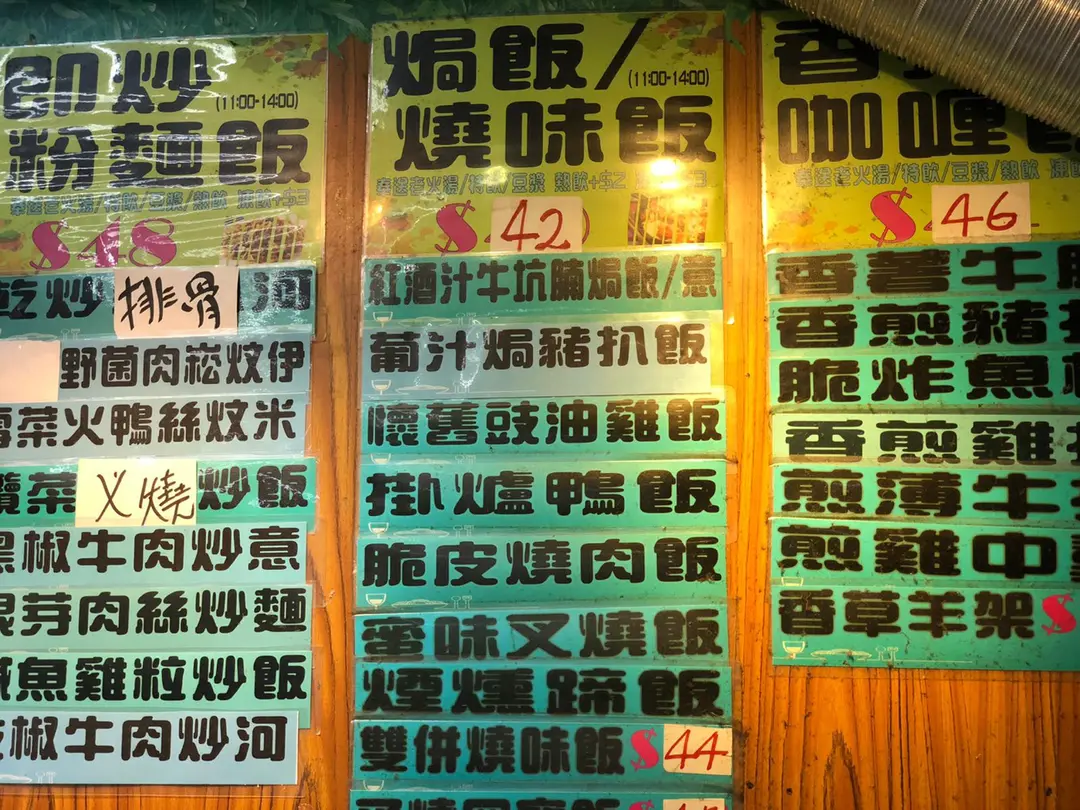 即炒(11:00-14:00)
粉麵飯
奉送老火湯/特飲/豆漿 熱飲 凍飲+$3
$48
乾炒排骨河
野菌肉崧炆伊
菜火鴨絲炆米
欖菜叉燒炒飯
黑椒牛肉炒意
銀芽肉絲炒麵
鹹魚雞粒炒飯
椒牛肉炒河
焗飯/(11:00-14:00)
燒味飯
奉送老火湯/特飲/豆漿 熱飲+$2
$42
紅酒汁牛坑腩焗飯/意
葡汁焗豬扒飯
懷舊豉油雞飯
掛爐鴨飯
脆皮燒肉飯
蜜味叉燒飯
煙燻蹄飯
雙併燒味飯$44
香
咖喱
奉送老火湯/特飲/豆漿 熱飲 凍飲
$46
香薯牛
香煎豬
脆炸魚
香煎雞
煎薄牛
煎雞中
香草羊架$